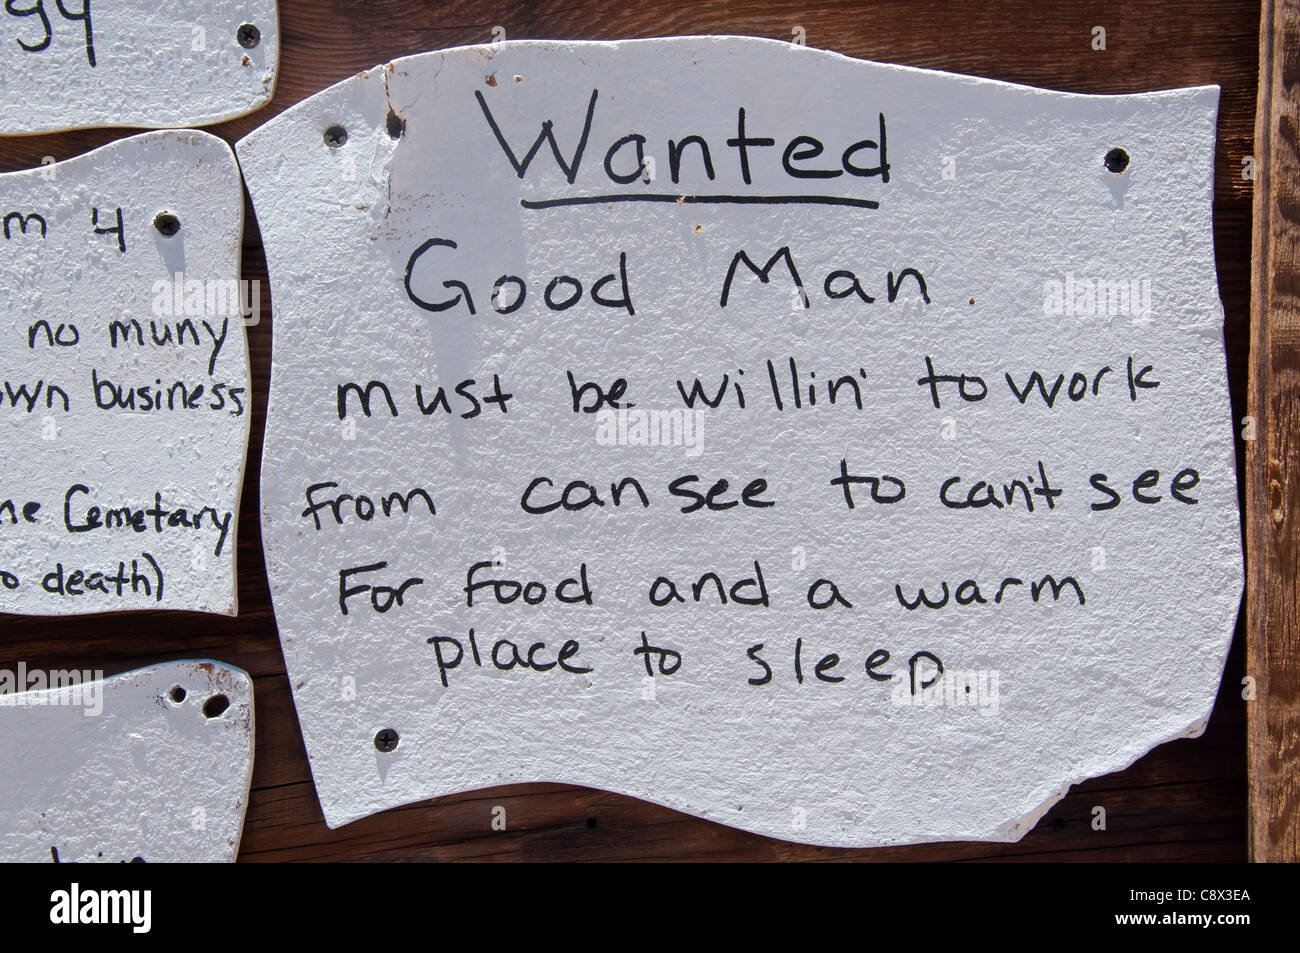 99
m 4
no muny
own business
Cemetary
to death)
Wanted
Good Man.
must be willin' to work
from can see to can't see
For food and a warm
place to sleep.
alamy
Image ID: C8X3EA
www.alamy.com